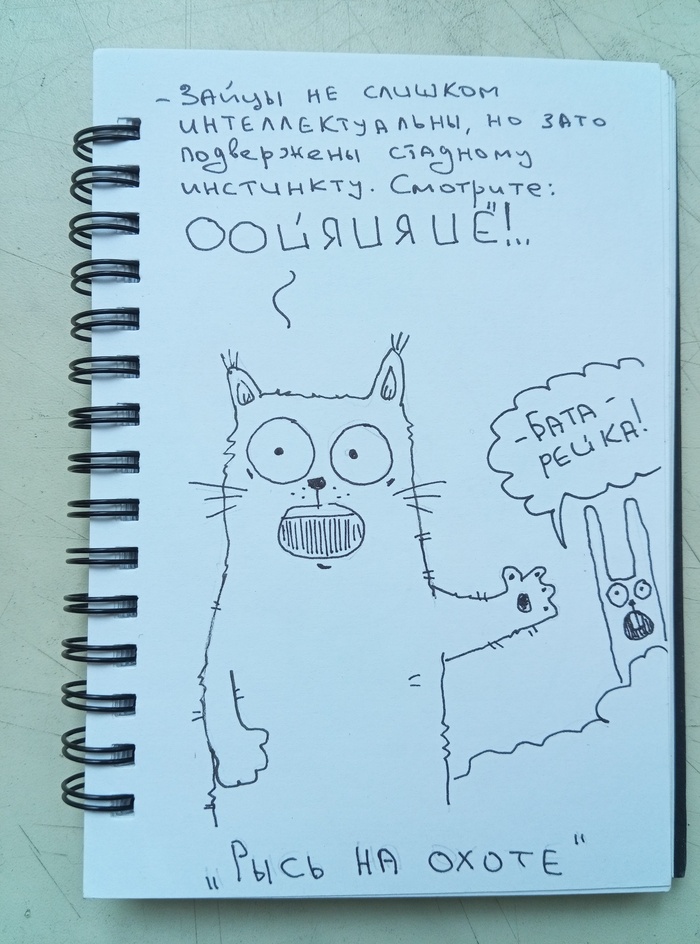 - Зайцы не слишком
интеллектуальны, но зато
подвержены стадному
инстинкту. Смотрите:
ООЙЯИЯИЁ!..
- БАТА-
РЕЙКА!
„Рысь на охоте"